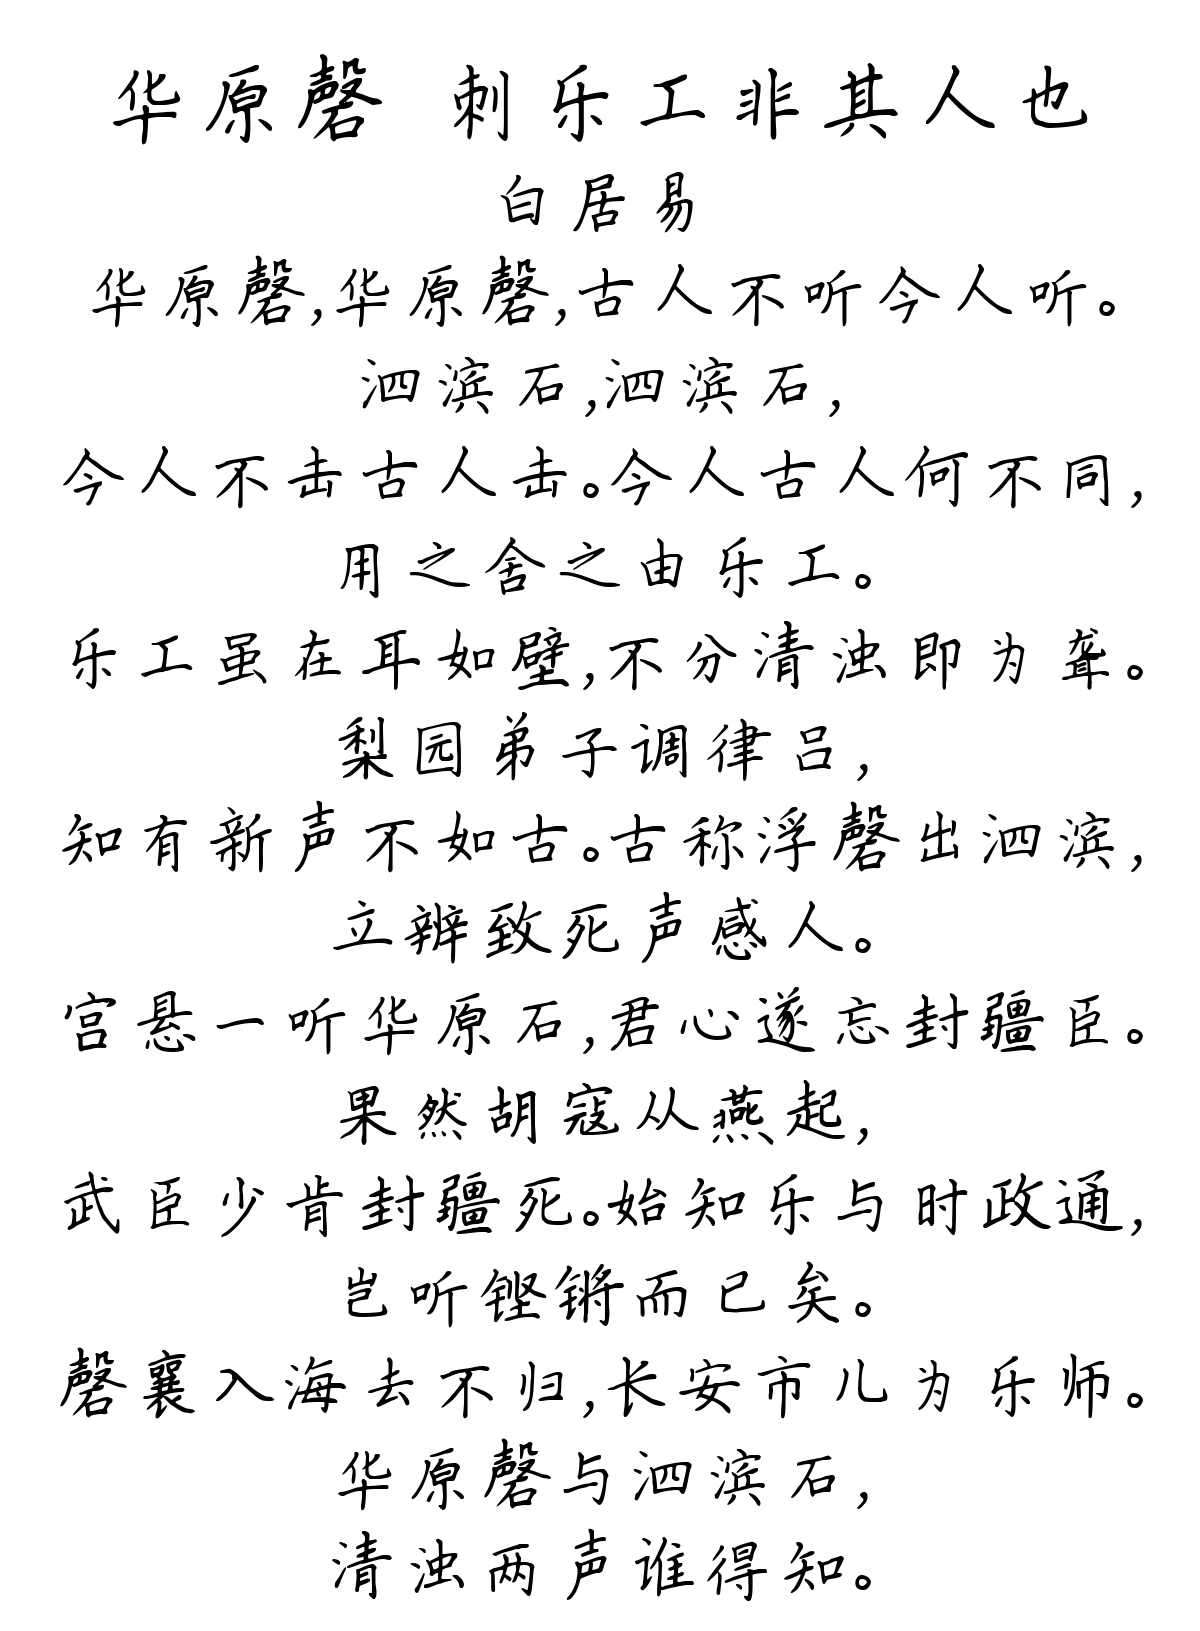 华原磬 刺乐工非其人也
白居易
华原磬,华原磬,古人不听今人听。
泗滨石,泗滨石,
今人不击古人击。今人古人何不同,
用之舍之由乐工。
乐工虽在耳如壁,不分清浊即为聋。
梨园弟子调律吕,
知有新声不如古。古称浮磬出泗滨,
立辨致死声感人。
宫悬一听华原石,君心遂忘封疆臣。
果然胡寇从燕起,
武臣少肯封疆死。始知乐与时政通,
岂听铿锵而已矣。
磬襄入海去不归,长安市儿为乐师。
华原磬与泗滨石,
清浊两声谁得知。